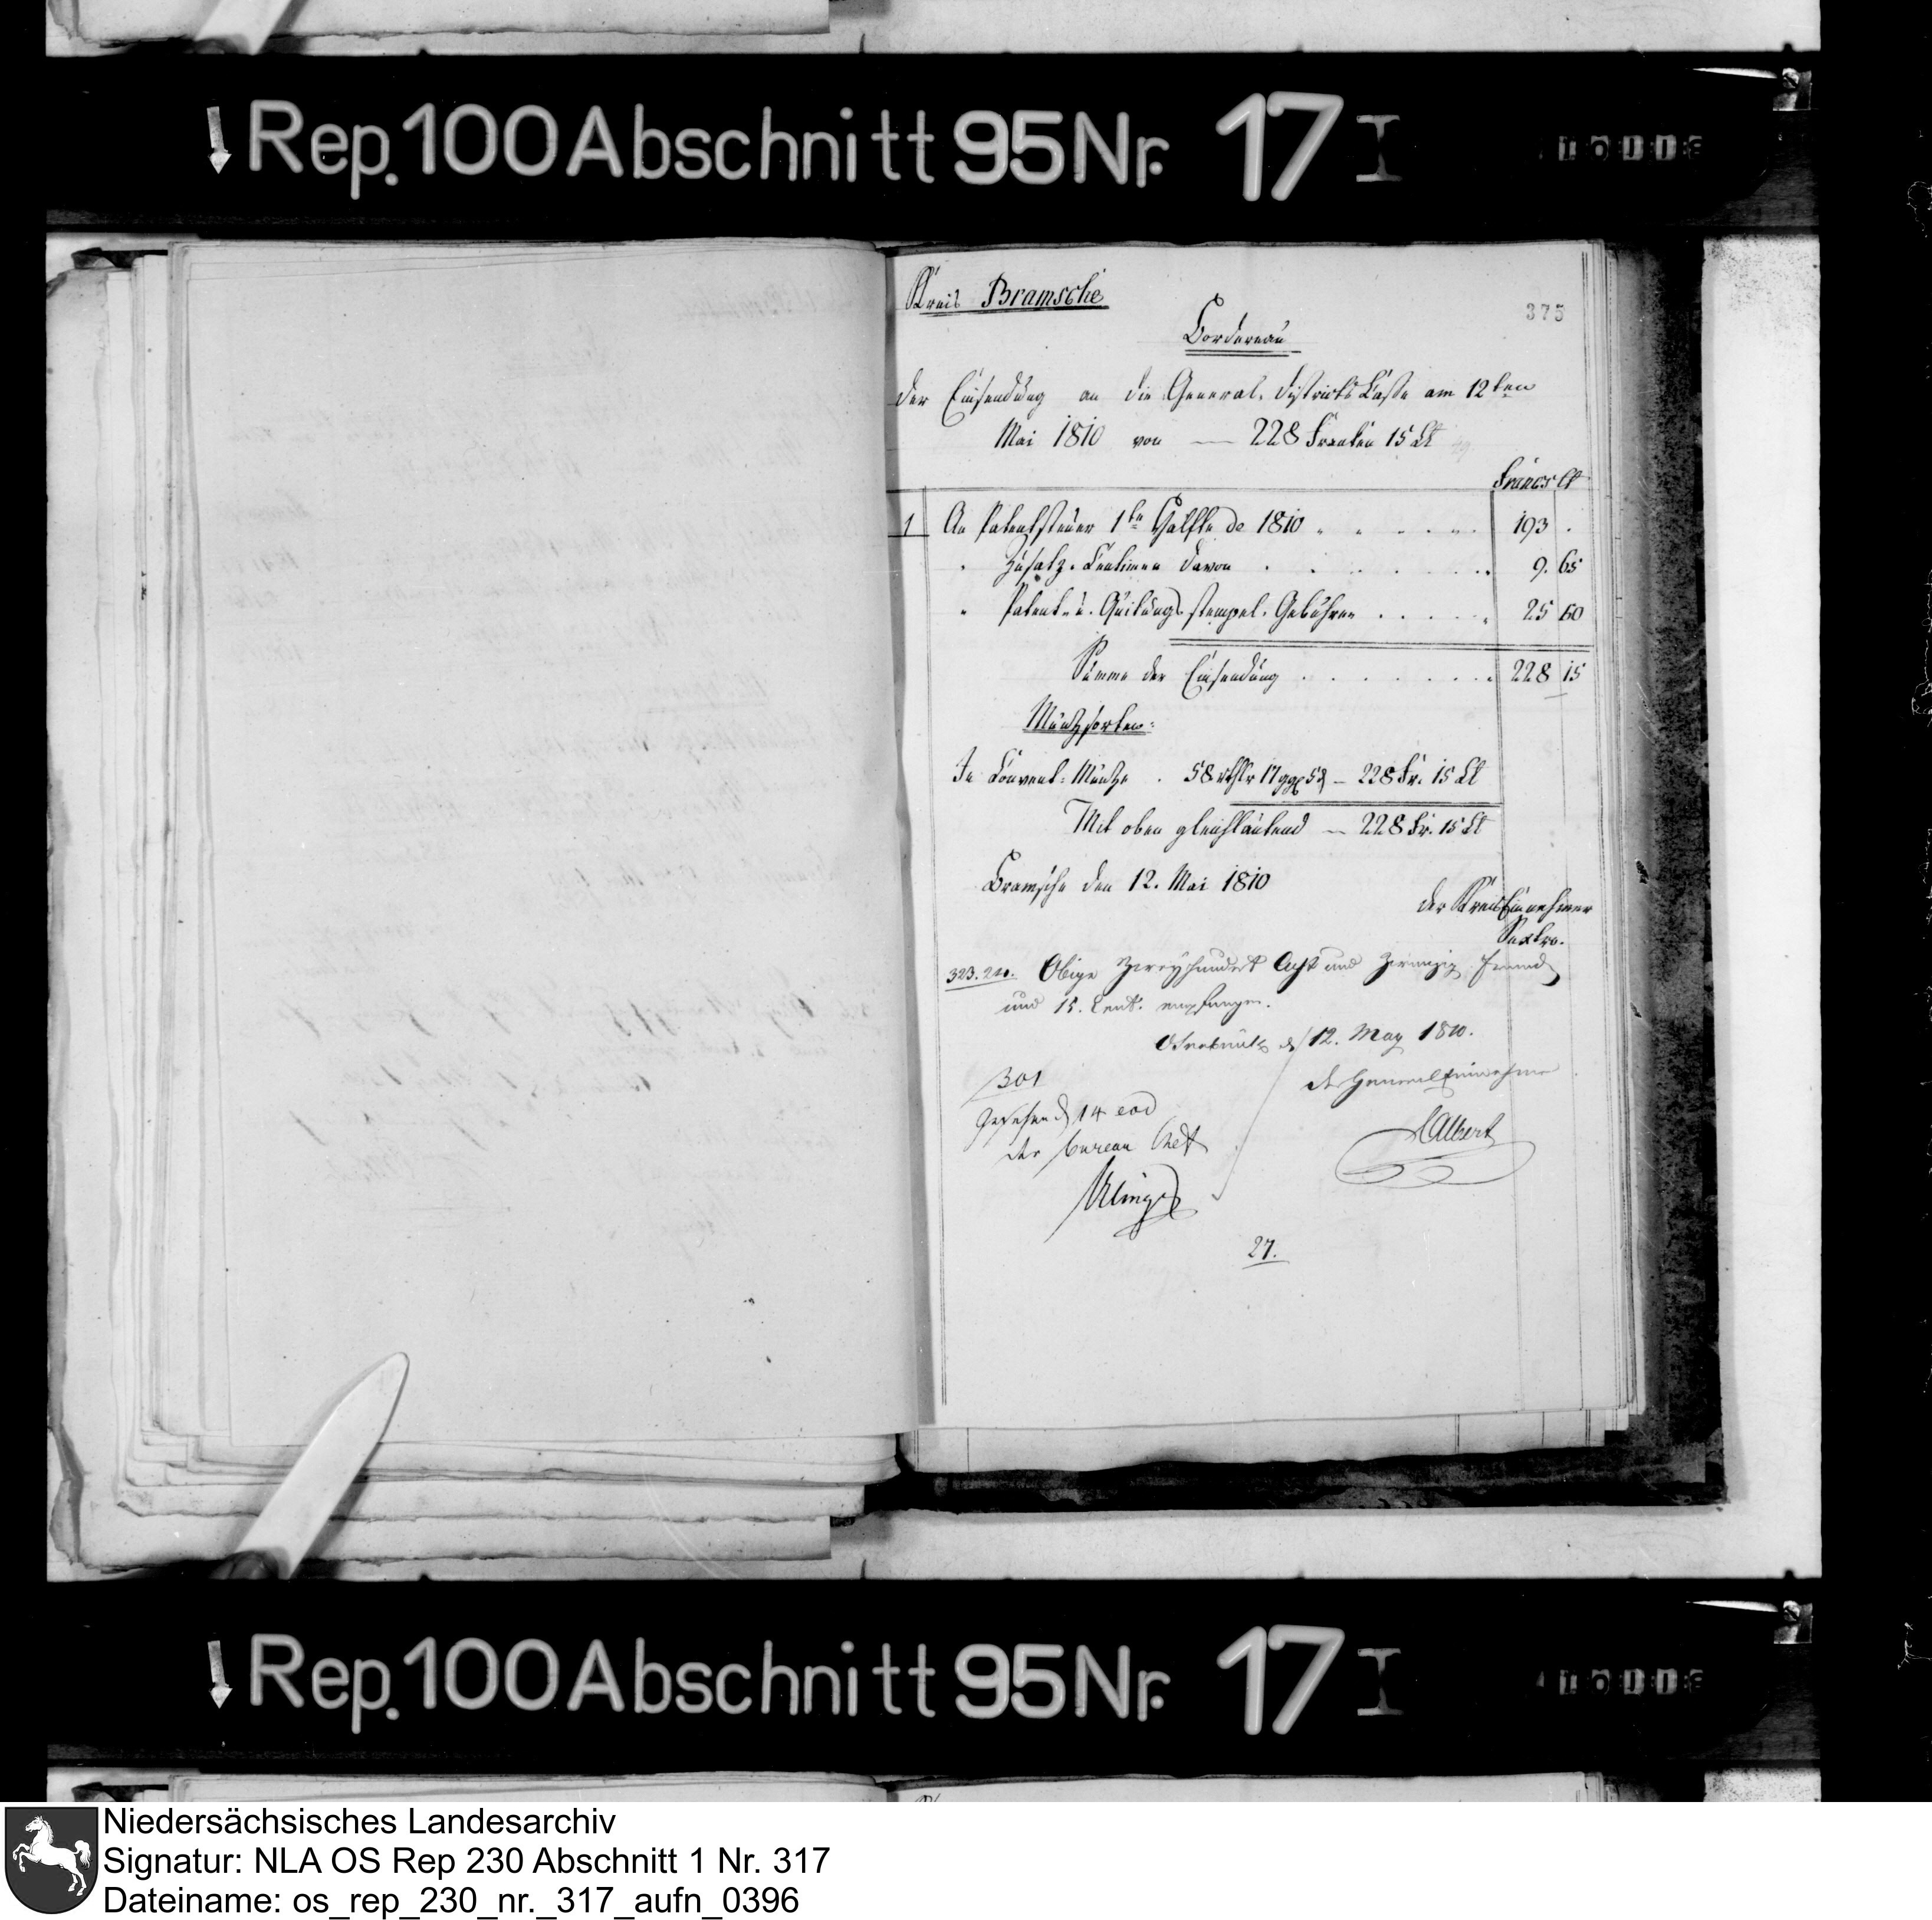 Rep. 100 Abschnitt 95 Nr. 17 I
Kreis Bramsche
375
Bordereau
der Einsendung an die General-Districts Casse am 12ten
Mai 1810 von — 228 Franken 15 Ct
Francs Ct
1 An Patentsteuer 1te Hälfte de 1810 193 .
" Zusatz-Centimen davon 9. 65
" Patent- u. Quitungsstempel-Gebühren 25 60
Summe der Einsendung 228 15
Müntzsorten:
In Convent-Müntze . 58 rthlr 17 ggr 5 d — 228 Fr. 15 Ct
Mit oben gleichlautend — 228 Fr. 15 Ct
Bramsche den 12. Mai 1810
der KreisEinnehmer
Sextro.
Obige Zweyhundert Acht und Zwanzig Francs
und 15. Cent. empfangen.
Osnabrück d 12. May 1810.
301
der GeneralEinnehmer
Gesehen d 14 eod
Albert
der Bureau Chef
27.
Rep. 100 Abschnitt 95 Nr. 17 I
Niedersächsisches Landesarchiv
Signatur: NLA OS Rep 230 Abschnitt 1 Nr. 317
Dateiname: os_rep_230_nr._317_aufn_0396